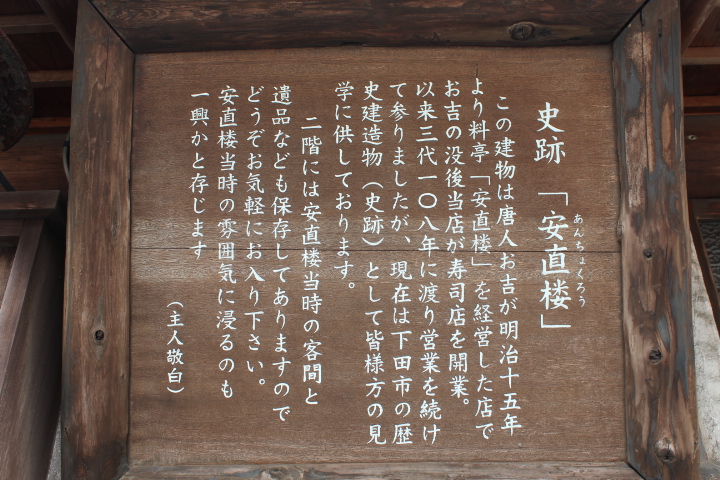 史跡「安直楼」
あんちょくろう
この建物は唐人お吉が明治十五年
より料亭「安直楼」を経営した店で
お吉の没後当店が寿司店を開業。
以来三代一〇八年に渡り営業を続け
て参りましたが、現在は下田市の歴
史建造物(史跡)として皆様方の見
学に供しております。
二階には安直楼当時の客間と
遺品なども保存してありますので
どうぞお気軽にお入り下さい。
安直楼当時の雰囲気に浸るのも
一興かと存じます
(主人敬白)